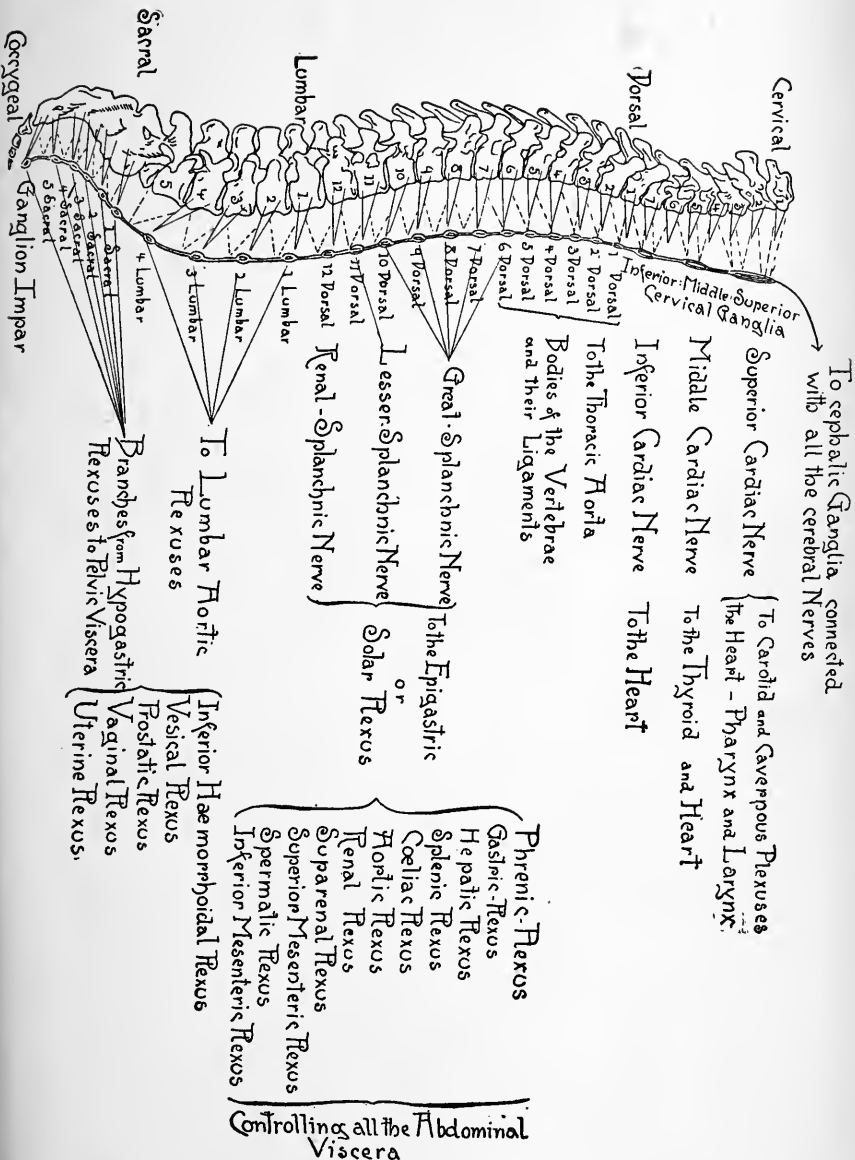 Cervical
Dorsal
Lumbar
Sacral
Coccygeal
1
2
3
4
5
6
7
8
9
10
11
12
1
2
3
4
5
To cephalic Ganglia connected
with all the cerebral Nerves
Inferior-Middle-Superior
Cervical Ganglia
Superior Cardiac Nerve
To Carotid and Cavernous Plexuses
the Heart - Pharynx and Larynx.
Middle Cardiac Nerve
To the Thyroid and Heart
Inferior Cardiac Nerve
To the Heart
1 Dorsal
2 Dorsal
3 Dorsal
4 Dorsal
5 Dorsal
6 Dorsal
To the Thoracic Aorta
Bodies of the Vertebrae
and their Ligaments
7 Dorsal
8 Dorsal
9 Dorsal
10 Dorsal
11 Dorsal
12 Dorsal
Great-Splanchnic Nerve
Lesser-Splanchnic Nerve
Renal-Splanchnic Nerve
To the Epigastric
or
Solar Plexus
Phrenic-Plexus
Gastric-Plexus
Hepatic Plexus
Splenic Plexus
Cœliac Plexus
Aortic Plexus
Renal Plexus
Suparenal Plexus
Superior Mesenteric Plexus
Spermatic Plexus
Inferior Mesenteric Plexus
Controlling all the Abdominal
Viscera
1 Lumbar
2 Lumbar
3 Lumbar
4 Lumbar
To Lumbar Aortic
Plexuses
1 Sacral
2 Sacral
3 Sacral
4 Sacral
5 Sacral
Ganglion Impar
Branches from Hypogastric
Plexuses to Pelvic Viscera
Inferior Haemorrhoidal Plexus
Vesical Plexus
Prostatic Plexus
Vaginal Plexus
Uterine Plexus.